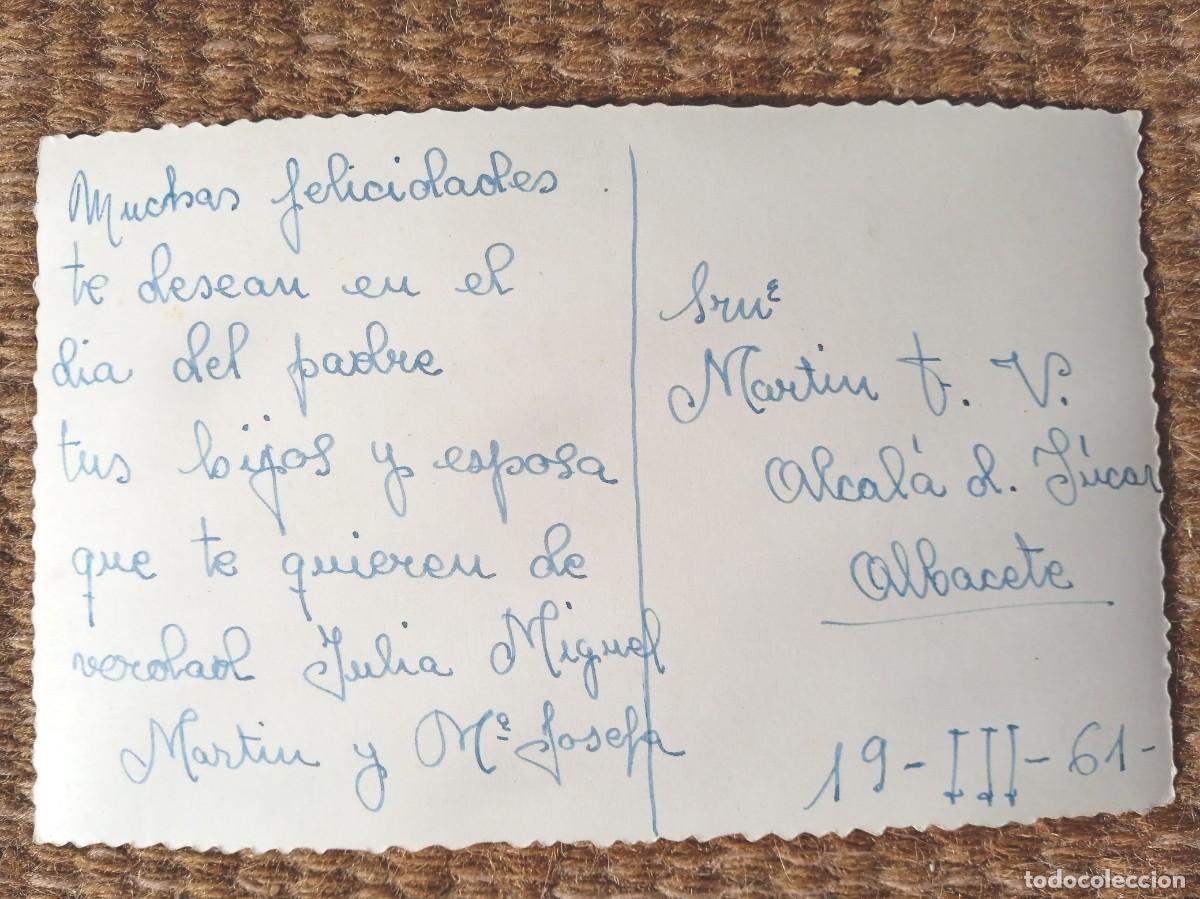 Muchas felicidades
te desean en el
dia del padre
tus hijos y esposa
que te quieren de
verdad Julia Miguel
Martin y Mª Josefa
Martin F. V.
Alcalá d. Júcar
Albacete
19-III-61-
todocoleccion